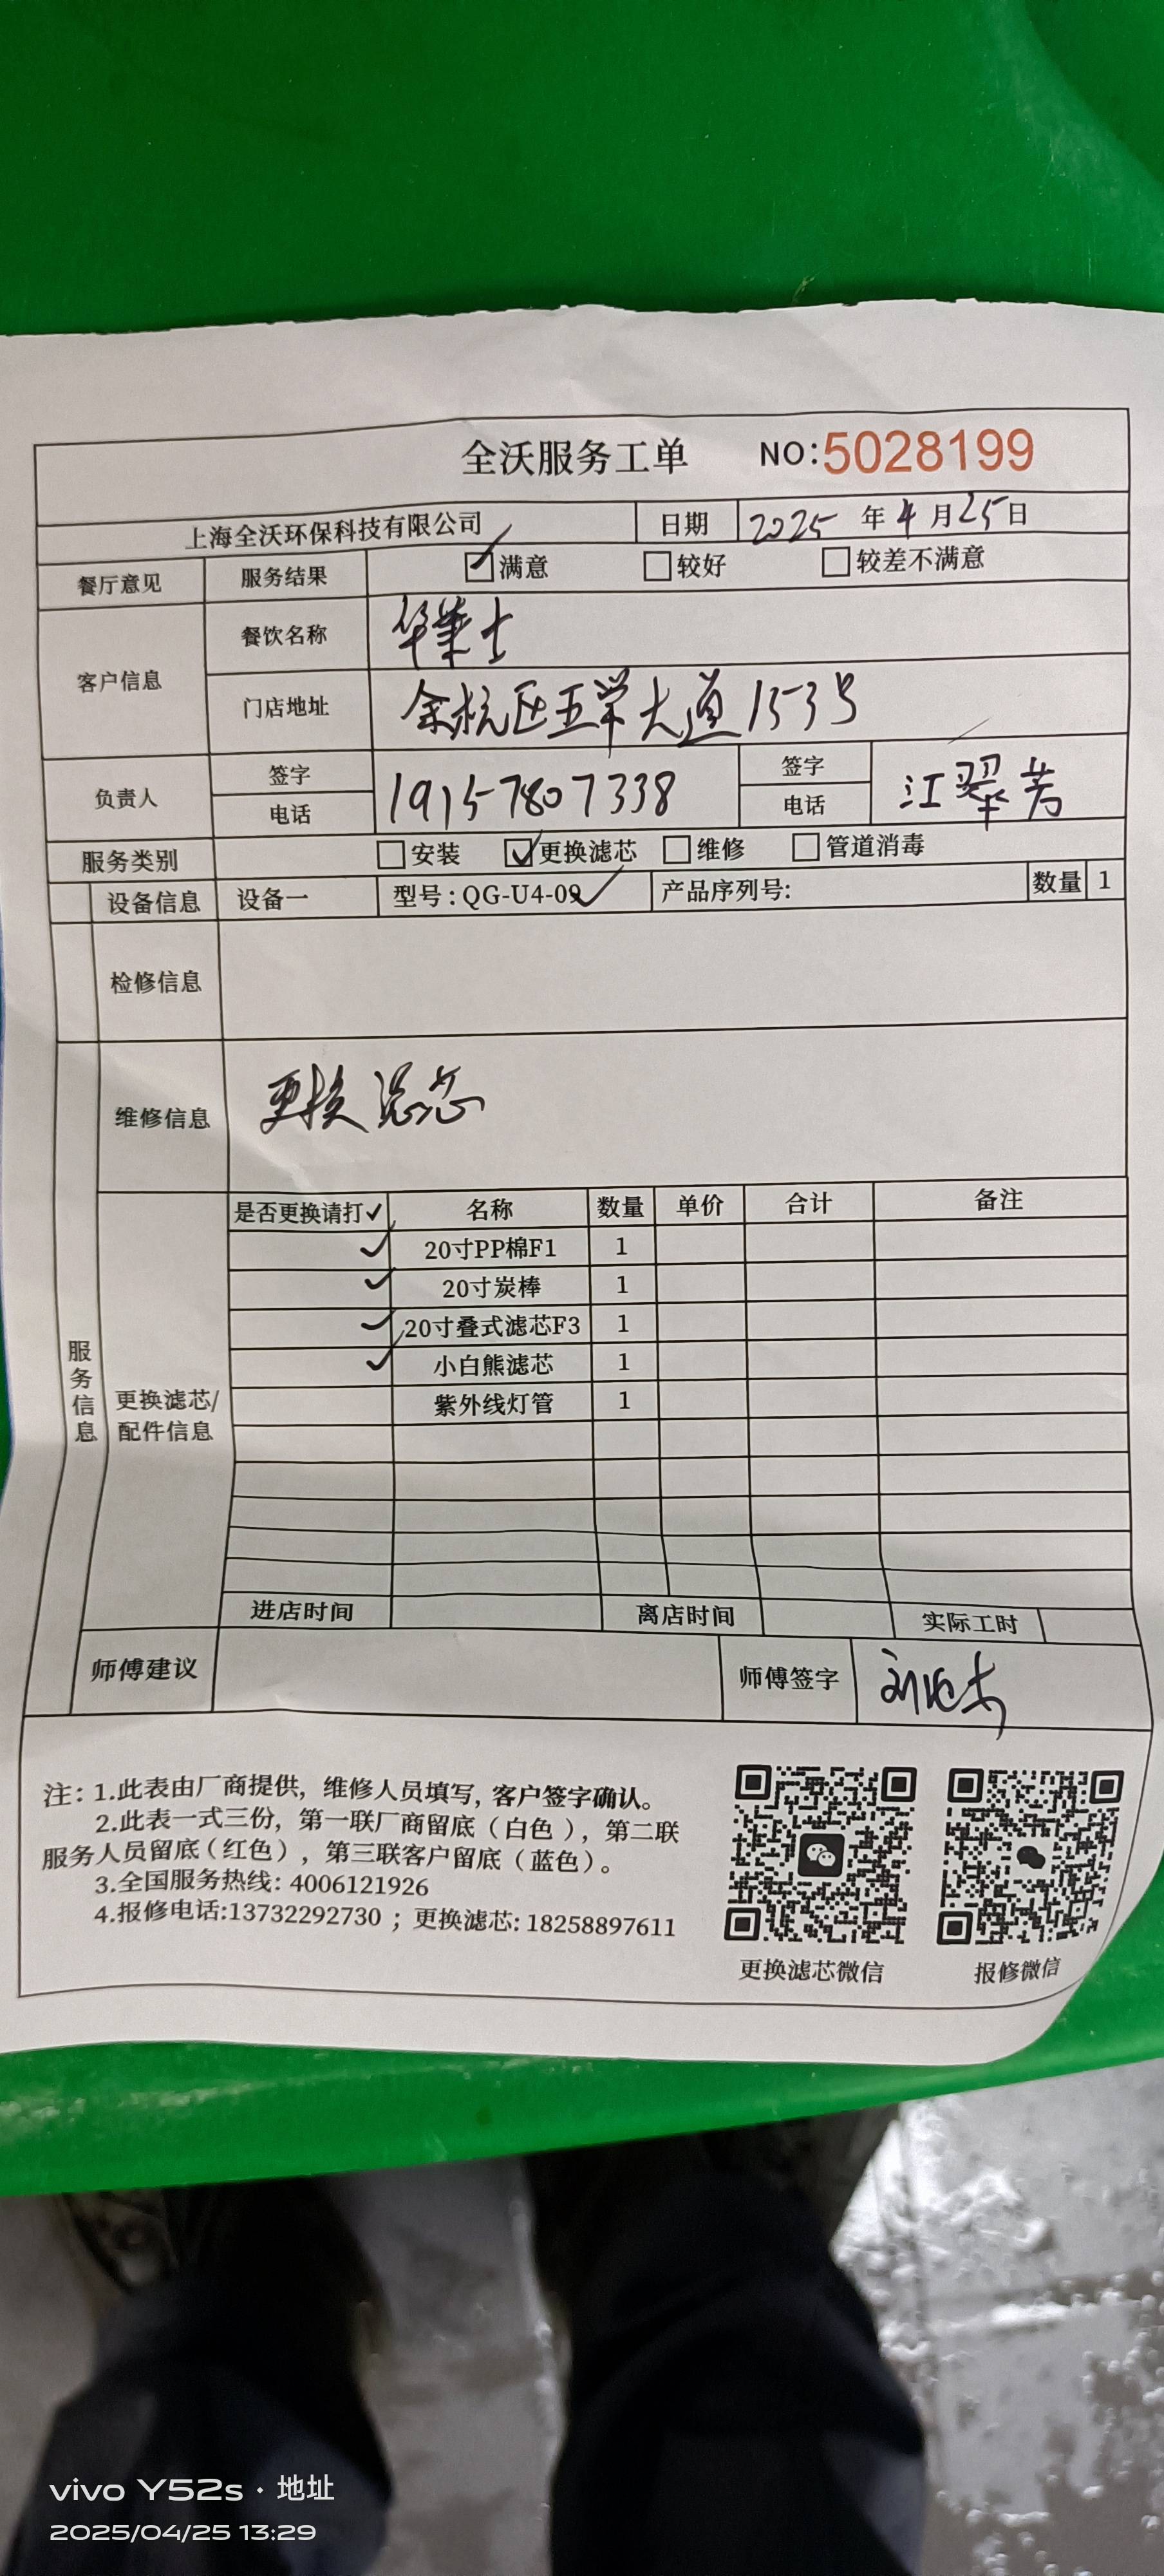 全沃服务工单 NO:5028199
上海全沃环保科技有限公司 日期 2025 年 4 月 25 日
餐厅意见 服务结果 满意 较好 较差不满意
客户信息 餐饮名称 华莱士
门店地址 余杭区五常大道153号
负责人 签字 电话 19157807338 签字 电话 江翠芳
服务类别 安装 更换滤芯 维修 管道消毒
设备信息 设备一 型号:QG-U4-09 产品序列号: 数量 1
检修信息
维修信息 更换滤芯
是否更换请打✓ 名称 数量 单价 合计 备注
✓ 20寸PP棉F1 1
✓ 20寸炭棒 1
✓ 20寸叠式滤芯F3 1
✓ 小白熊滤芯 1
紫外线灯管 1
服务信息
更换滤芯/
配件信息
进店时间 离店时间 实际工时
师傅建议 师傅签字 刘
注: 1.此表由厂商提供, 维修人员填写, 客户签字确认。
2.此表一式三份, 第一联厂商留底（白色）, 第二联
服务人员留底（红色）, 第三联客户留底（蓝色）。
3.全国服务热线: 4006121926
4.报修电话:13732292730 ; 更换滤芯: 18258897611
更换滤芯微信 报修微信
vivo Y52s · 地址
2025/04/25 13:29